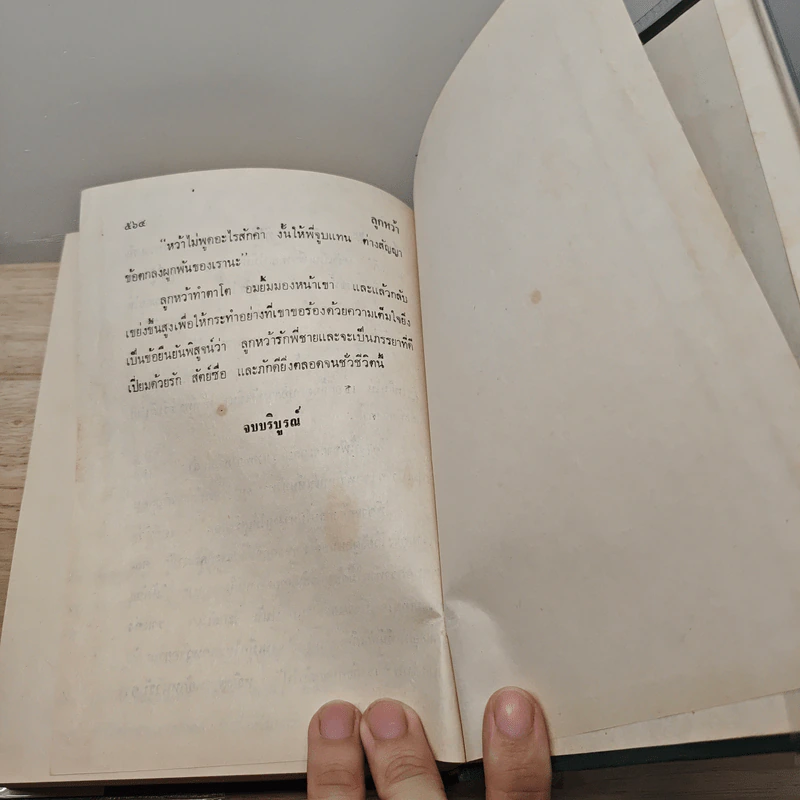 ๕๖๔ ลูกหว้า
“หว้าไม่พูดอะไรสักคำ งั้นให้พี่จูบแทน ต่างสัญญา
ข้อตกลงผูกพันของเรานะ”
ลูกหว้าทำตาโต อมยิ้มมองหน้าเขา และแล้วกลับ
เขย่งขึ้นสูงเพื่อให้กระทำอย่างที่เขาขอร้องด้วยความเต็มใจยิ่ง
เป็นข้อยืนยันพิสูจน์ว่า ลูกหว้ารักพี่ชายและจะเป็นภรรยาที่ดี
เปี่ยมด้วยรัก สัตย์ซื่อ และภักดียิ่งตลอดจนชั่วชีวิตนี้
จบบริบูรณ์